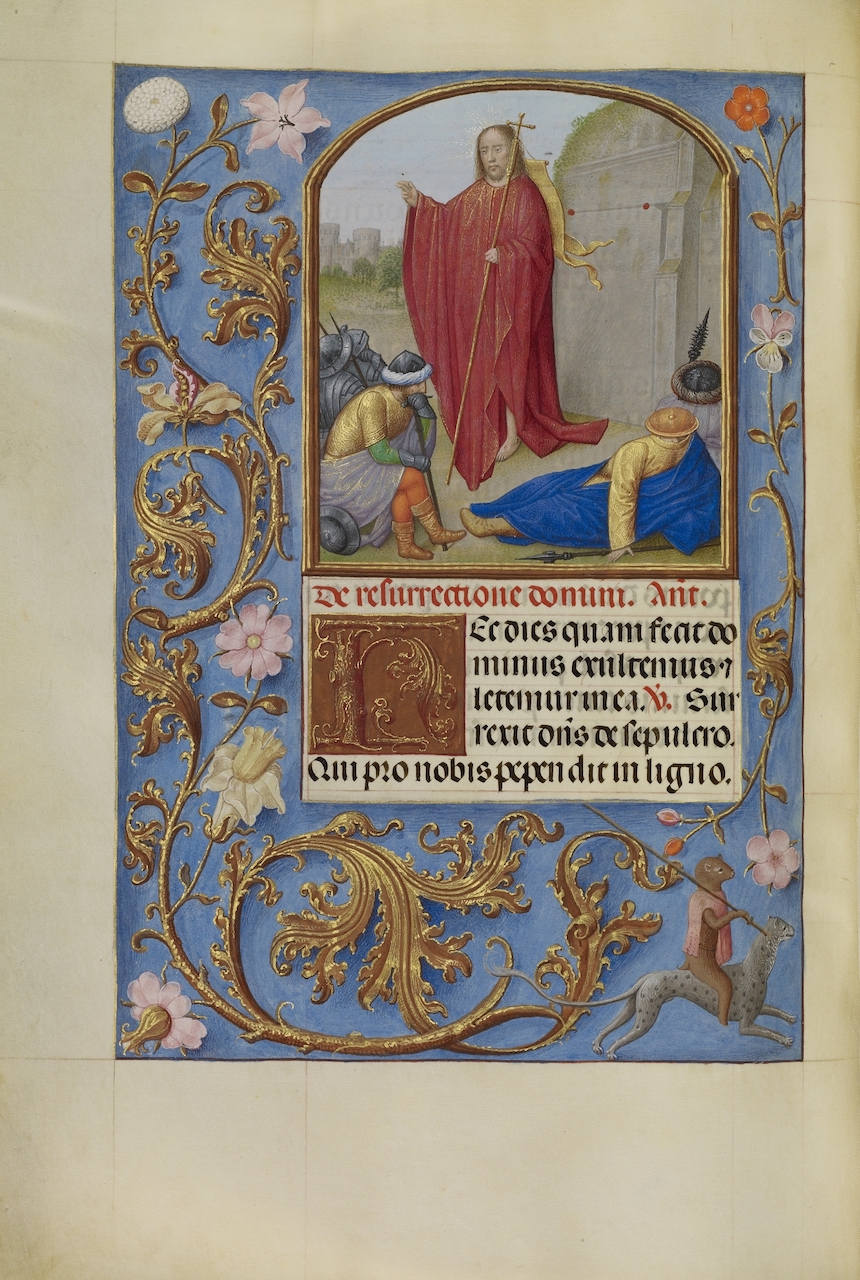 De resurrectione domini. Añt.
Hec dies quam fecit do
minus exultemus ⁊
letemur in ea. V̇. Sur
rexit dn̄s de sepulcro.
Qui pro nobis pependit in ligno.